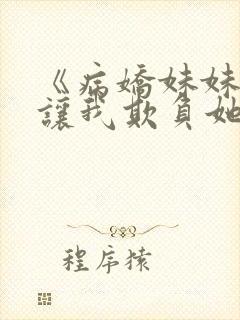 《病嬌妹妹
讓我欺負她
程序猿